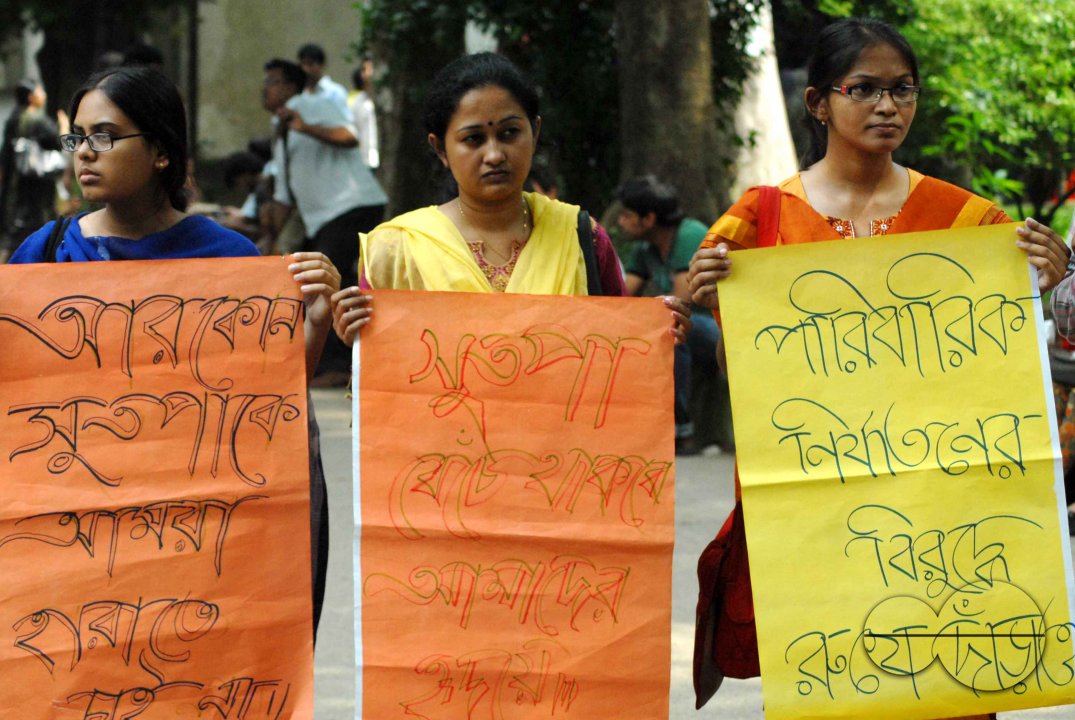 আর কোন
সুতপাকে
আমরা
হারাতে
চাই না
সুতপা
বেঁচে থাকবে
আমাদের
হৃদয়ে
পারিবারিক
নির্যাতনের
বিরুদ্ধে
রুখে দাঁড়াও